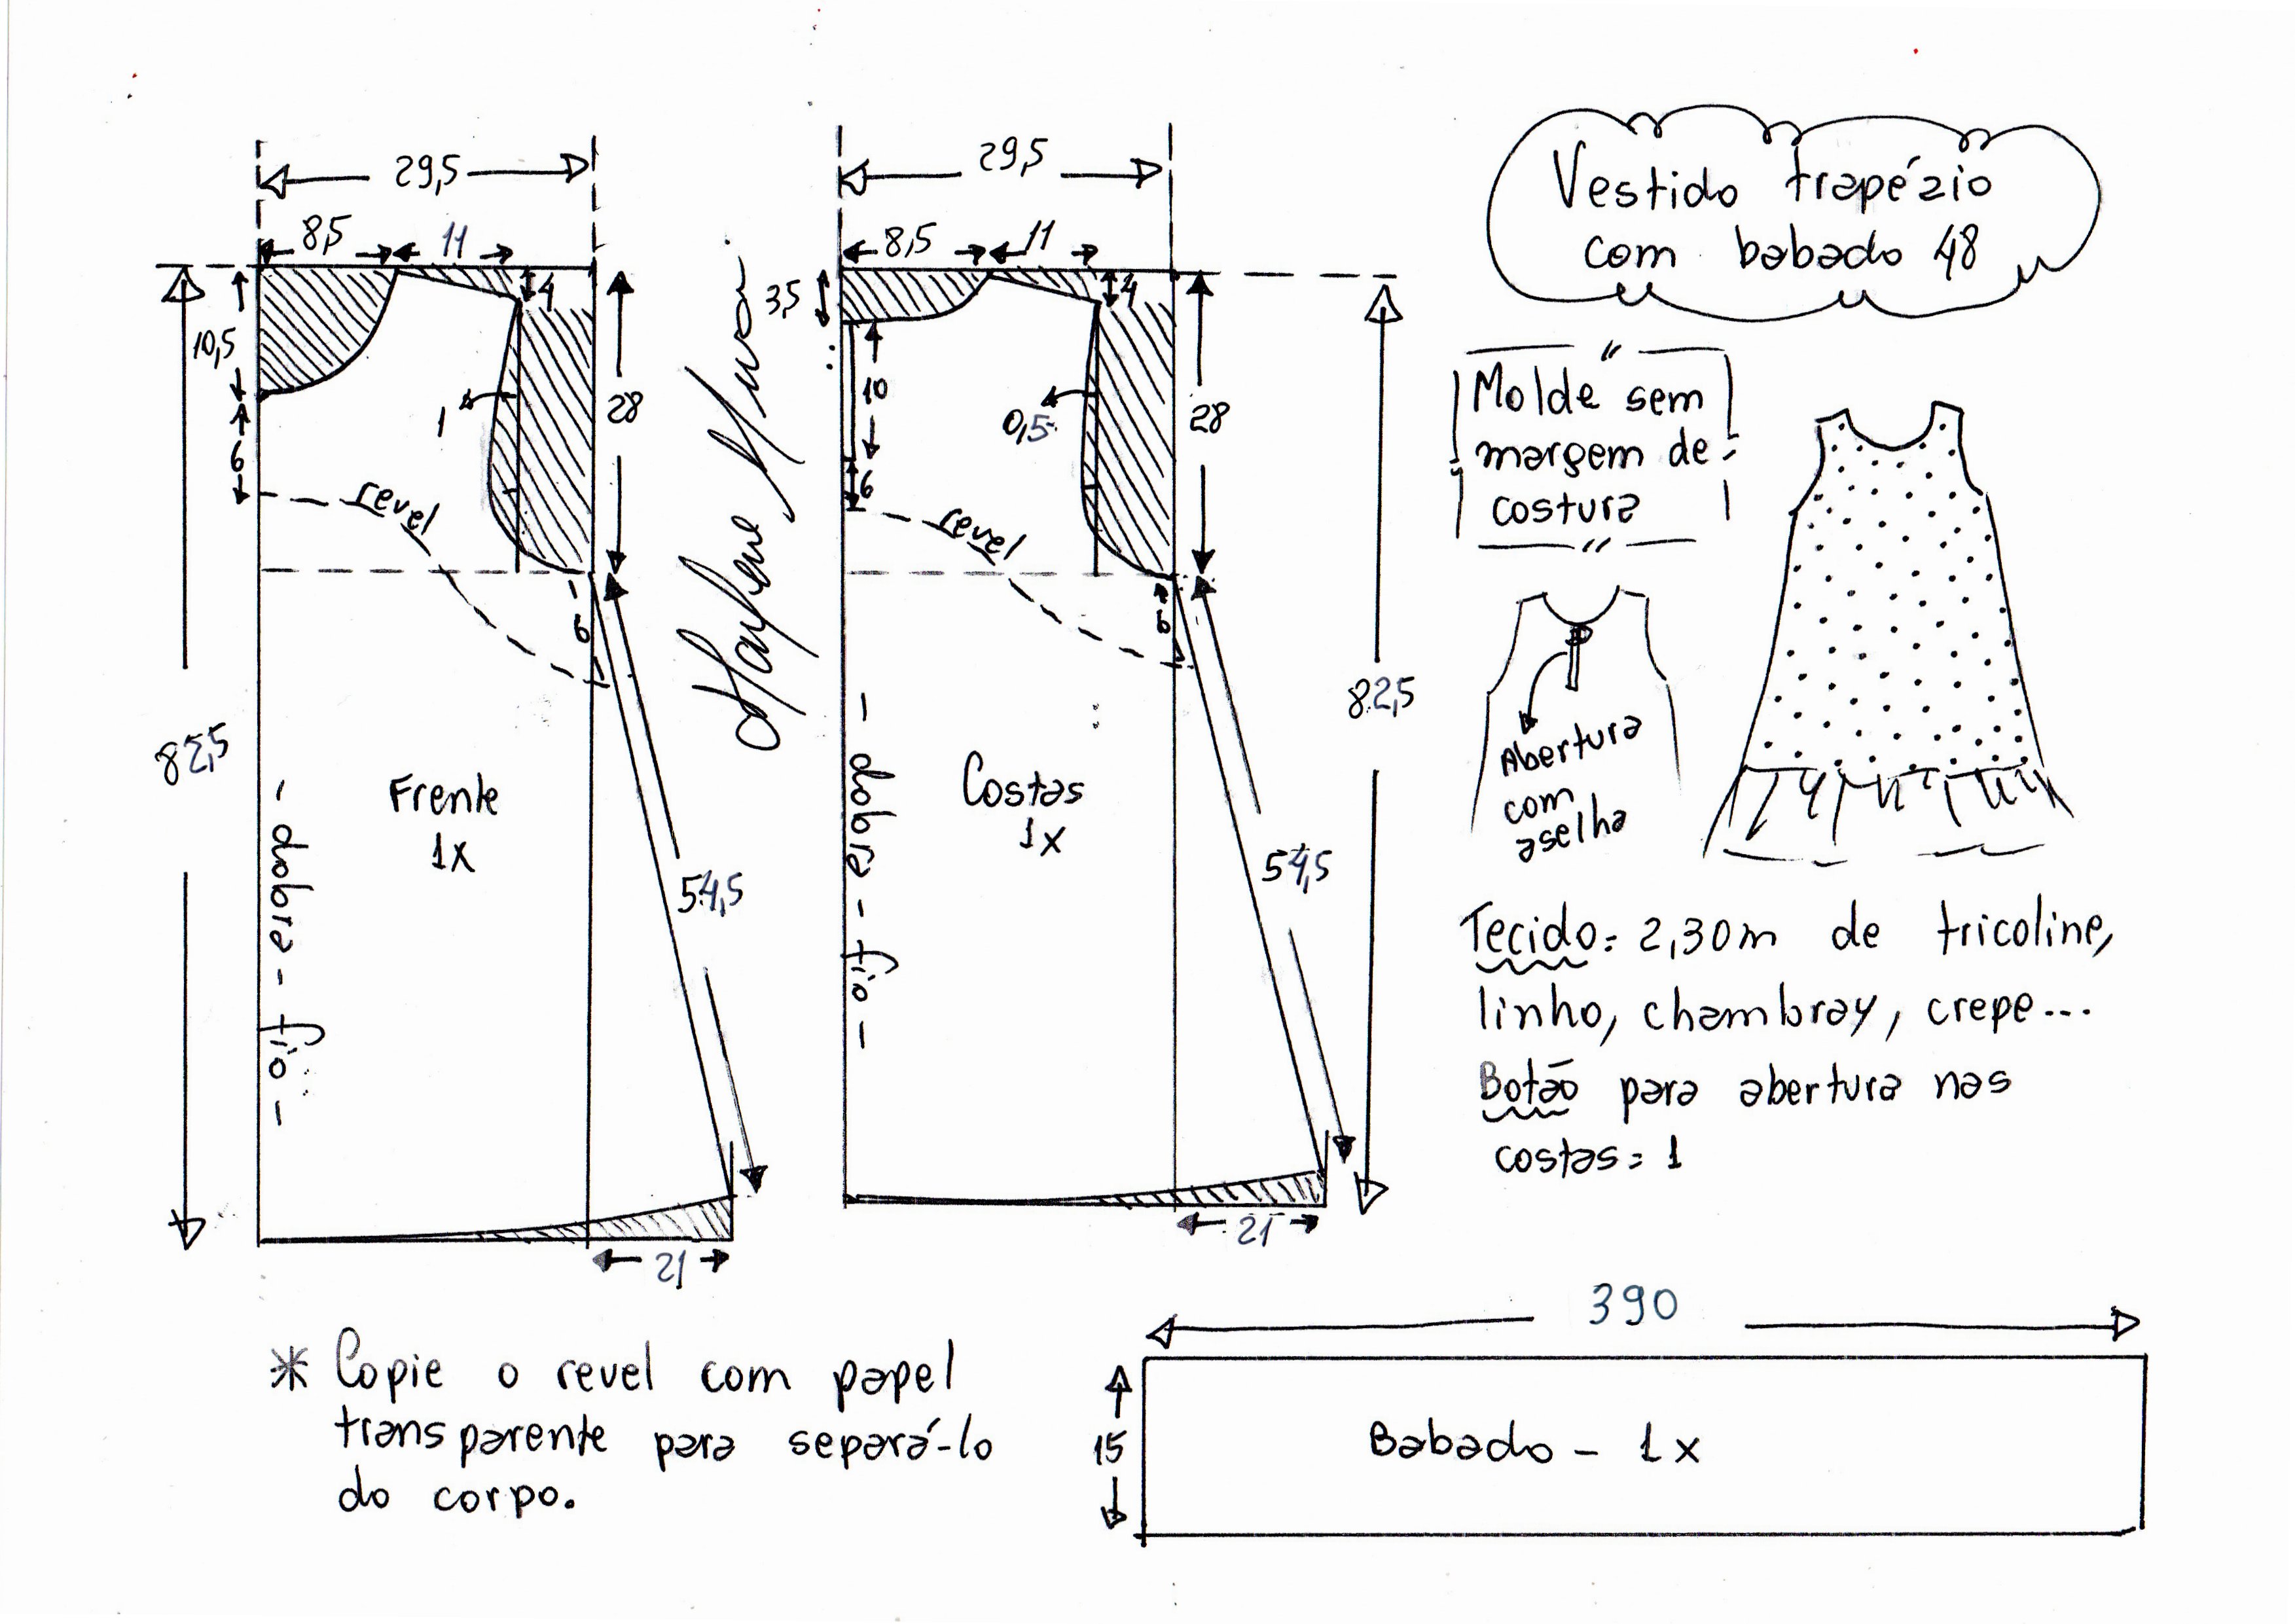 29,5
8,5
11
4
10,5
6
1
28
revel
6
82,5
Frente
1x
- dobra - fio -
54,5
21
Marlene Mukai
29,5
8,5
11
3,5
4
10
6
0,5
28
revel
6
82,5
Costas
1x
- dobra - fio -
54,5
21
Vestido trapézio
com babado 48
Molde sem
margem de
costura
Abertura
com
aselha
Tecido = 2,30m de tricoline,
linho, chambray, crepe...
Botão para abertura nas
costas = 1
* Copie o revel com papel
transparente para separá-lo
do corpo.
390
15
Babado - 1x